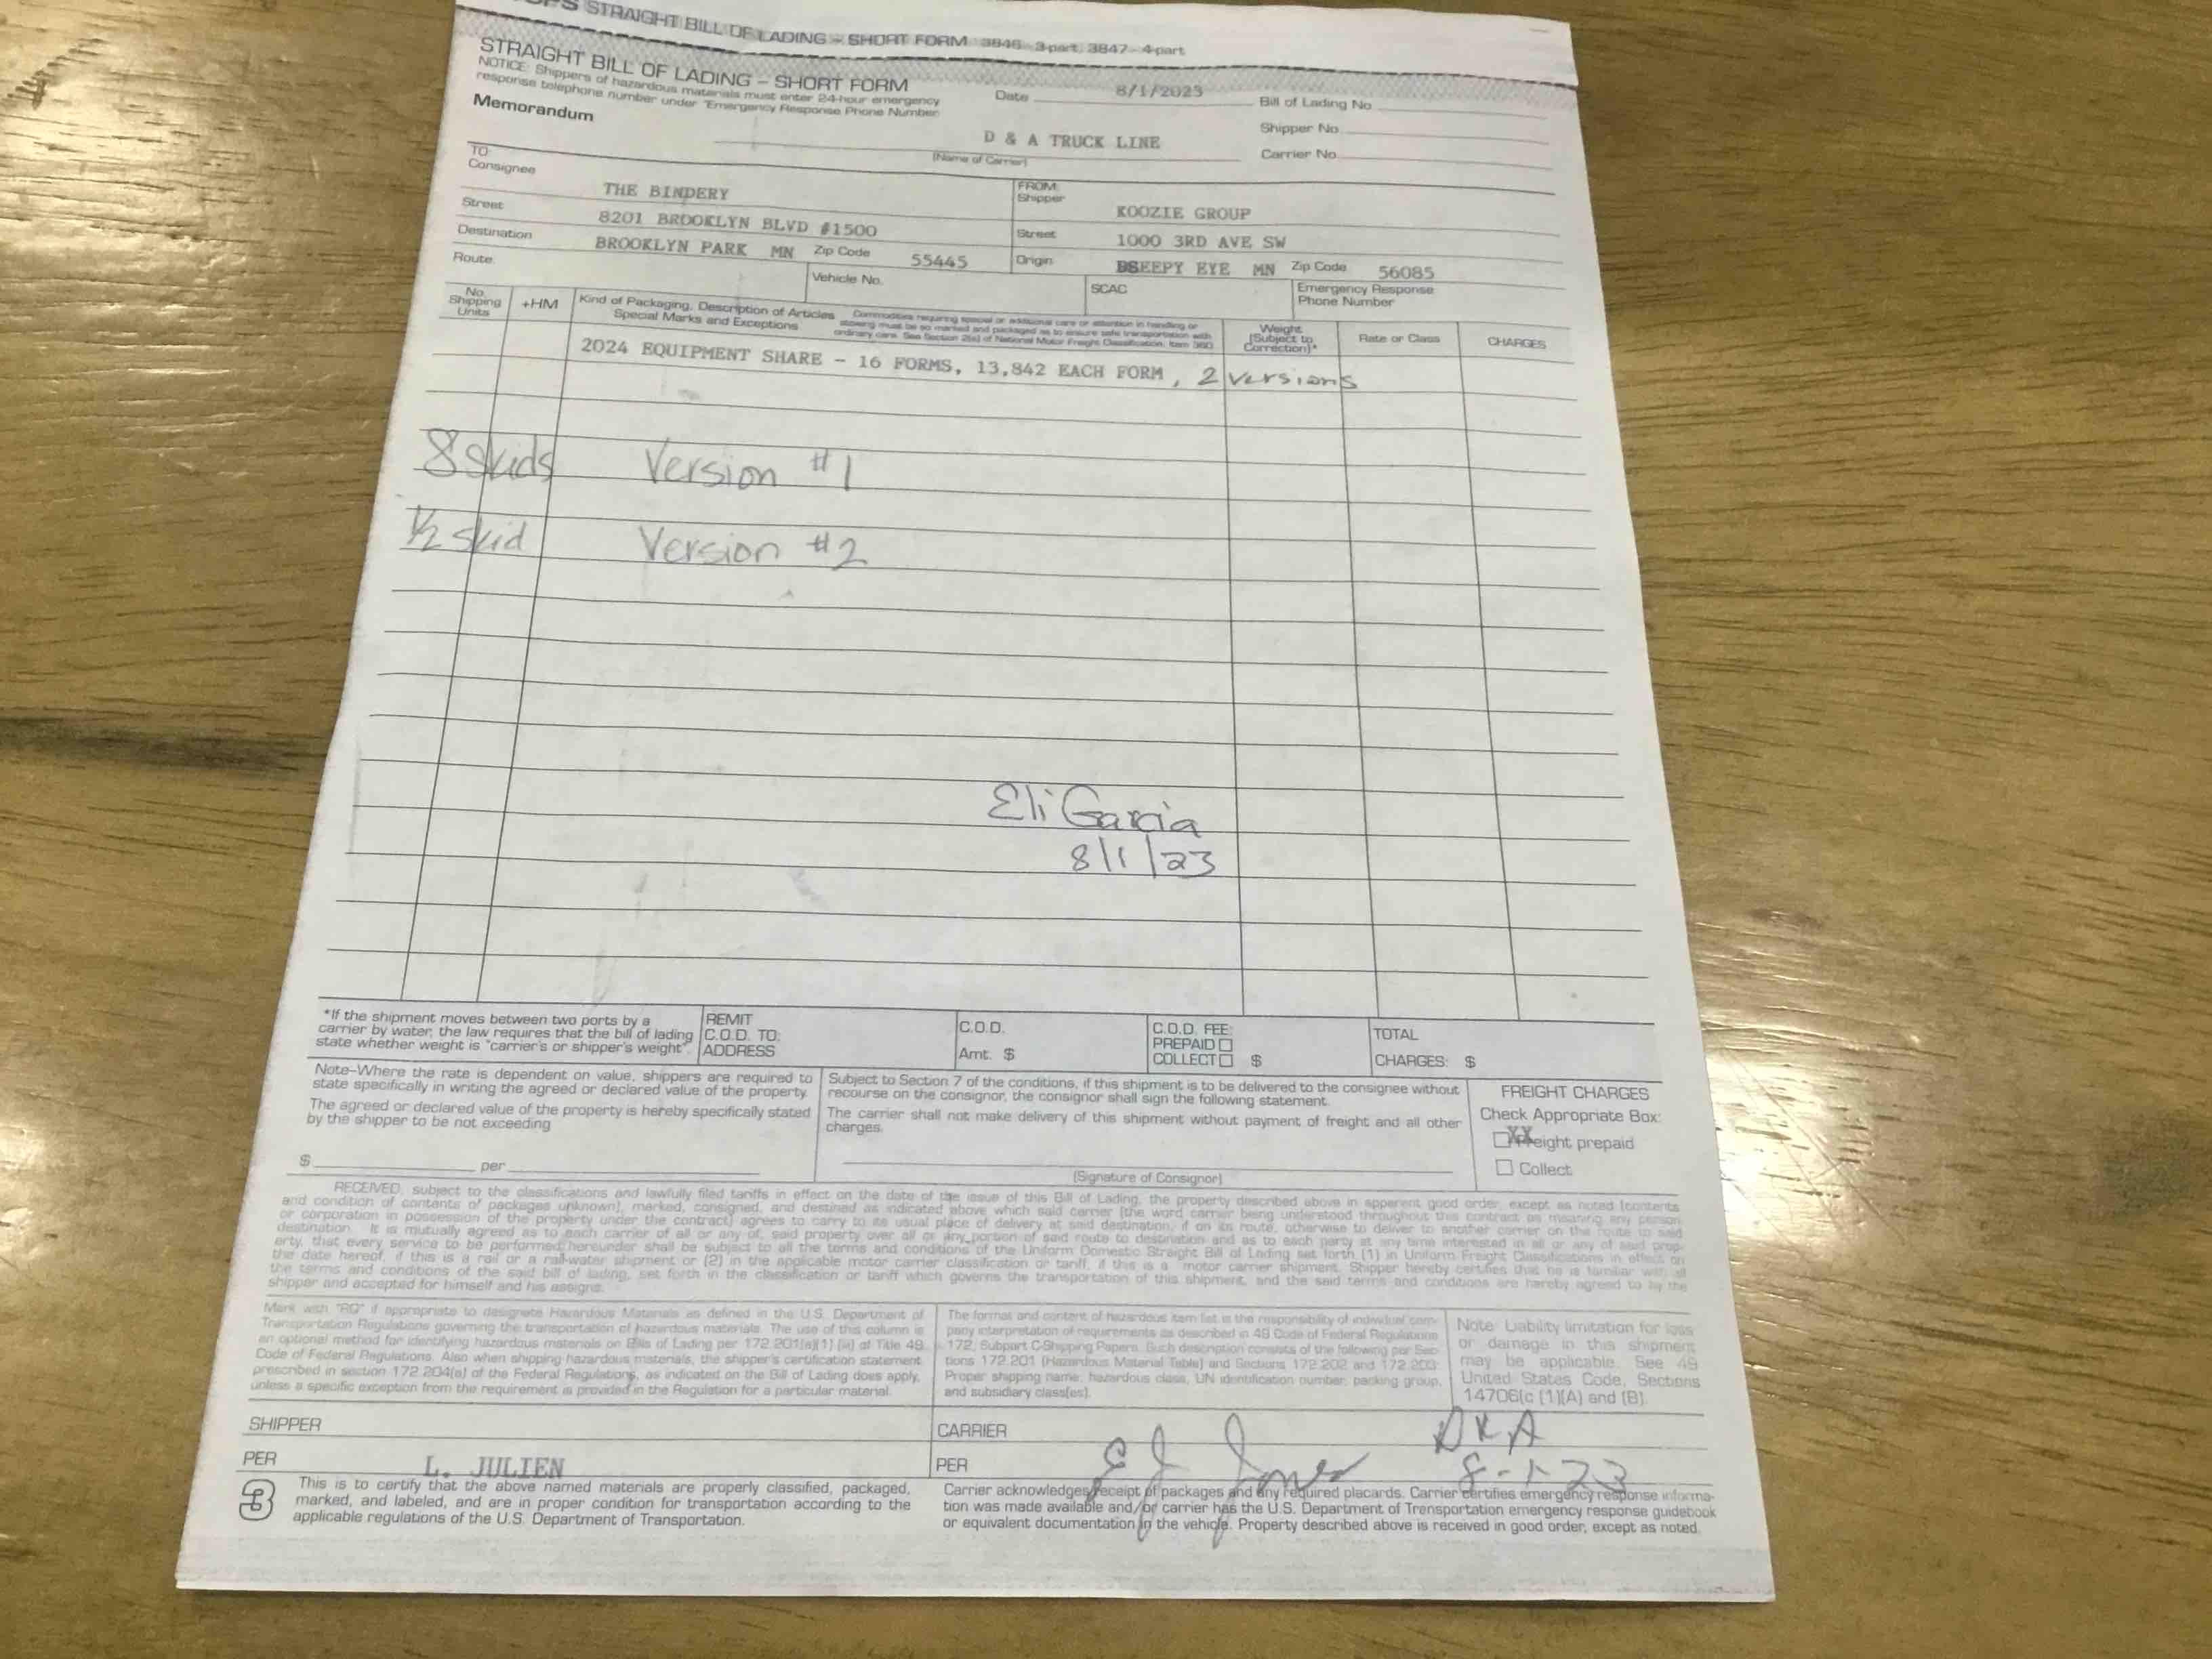 STRAIGHT BILL OF LADING – SHORT FORM 3846 3-part, 3847- 4-part
STRAIGHT BILL OF LADING – SHORT FORM
NOTICE: Shippers of hazardous materials must enter 24-hour emergency
response telephone number under "Emergency Response Phone Number.
Memorandum
Date 8/1/2023
Bill of Lading No.
Shipper No.
Carrier No.
D & A TRUCK LINE
(Name of Carrier)
TO:
Consignee THE BINDERY
Street 8201 BROOKLYN BLVD #1500
Destination BROOKLYN PARK MN Zip Code 55445
FROM:
Shipper KOOZIE GROUP
Street 1000 3RD AVE SW
Origin EYE MN Zip Code 56085
Route
Vehicle No.
SCAC
Emergency Response
Phone Number
No.
Shipping
Units
+HM
Kind of Packaging, Description of Articles
Special Marks and Exceptions
Commodities requiring special or additional care or attention in handling or
stowing must be so marked and packaged as to ensure safe transportation with
ordinary care. See Section 2(e) of National Motor Freight Classification, Item 360
Weight
(Subject to
Correction)*
Rate or Class
CHARGES
2024 EQUIPMENT SHARE – 16 FORMS, 13,842 EACH FORM , 2 versions
8 skids Version #1
½ skid Version #2
Eli Garcia
8/1/23
*If the shipment moves between two ports by a
carrier by water, the law requires that the bill of lading
state whether weight is "carrier's or shipper's weight".
REMIT
C.O.D. TO:
ADDRESS
C.O.D.
Amt. $
C.O.D. FEE:
PREPAID
COLLECT $
TOTAL
CHARGES: $
Note–Where the rate is dependent on value, shippers are required to
state specifically in writing the agreed or declared value of the property.
The agreed or declared value of the property is hereby specifically stated
by the shipper to be not exceeding
$ per
Subject to Section 7 of the conditions, if this shipment is to be delivered to the consignee without
recourse on the consignor, the consignor shall sign the following statement.
The carrier shall not make delivery of this shipment without payment of freight and all other
charges.
(Signature of Consignor)
FREIGHT CHARGES
Check Appropriate Box:
XX Freight prepaid
Collect
RECEIVED, subject to the classifications and lawfully filed tariffs in effect on the date of the issue of this Bill of Lading, the property described above in apparent good order, except as noted (contents
and condition of contents of packages unknown), marked, consigned, and destined as indicated above which said carrier (the word carrier being understood throughout this contract as meaning any person
or corporation in possession of the property under the contract) agrees to carry to its usual place of delivery at said destination, if on its route, otherwise to deliver to another carrier on the route to said
destination. It is mutually agreed as to each carrier of all or any of, said property over all or any portion of said route to destination and as to each party at any time interested in all or any of said prop-
erty, that every service to be performed hereunder shall be subject to all the terms and conditions of the Uniform Domestic Straight Bill of Lading set forth (1) in Uniform Freight Classifications in effect on
the date hereof, if this is a rail or a rail-water shipment or (2) in the applicable motor carrier classification or tariff, if this is a motor carrier shipment. Shipper hereby certifies that he is familiar with all
the terms and conditions of the said bill of lading, set forth in the classification or tariff which governs the transportation of this shipment, and the said terms and conditions are hereby agreed to by the
shipper and accepted for himself and his assigns.
Mark with "RQ" if appropriate to designate Hazardous Materials as defined in the U.S. Department of
Transportation Regulations governing the transportation of hazardous materials. The use of this column is
an optional method for identifying hazardous materials on Bills of Lading per 172.201(a)(1) (iii) of Title 49
Code of Federal Regulations. Also when shipping hazardous materials, the shipper's certification statement
prescribed in section 172.204(a) of the Federal Regulations, as indicated on the Bill of Lading does apply,
unless a specific exception from the requirement is provided in the Regulation for a particular material.
The format and content of hazardous item list is the responsibility of individual com-
pany interpretation of requirements as described in 49 Code of Federal Regulations
172, Subpart C-Shipping Papers. Such description consists of the following per Sec-
tions 172.201 (Hazardous Material Table) and Sections 172.202 and 172.203:
Proper shipping name, hazardous class, UN identification number, packing group,
and subsidiary class(es).
Note: Liability limitation for loss
or damage in this shipment
may be applicable. See 49
United States Code, Sections
14706(c (1)(A) and (B).
SHIPPER
PER L. JULIEN
CARRIER D & A
PER E J Jones 8-1-23
3
This is to certify that the above named materials are properly classified, packaged,
marked, and labeled, and are in proper condition for transportation according to the
applicable regulations of the U.S. Department of Transportation.
Carrier acknowledges receipt of packages and any required placards. Carrier certifies emergency response informa-
tion was made available and/or carrier has the U.S. Department of Transportation emergency response guidebook
or equivalent documentation in the vehicle. Property described above is received in good order, except as noted.